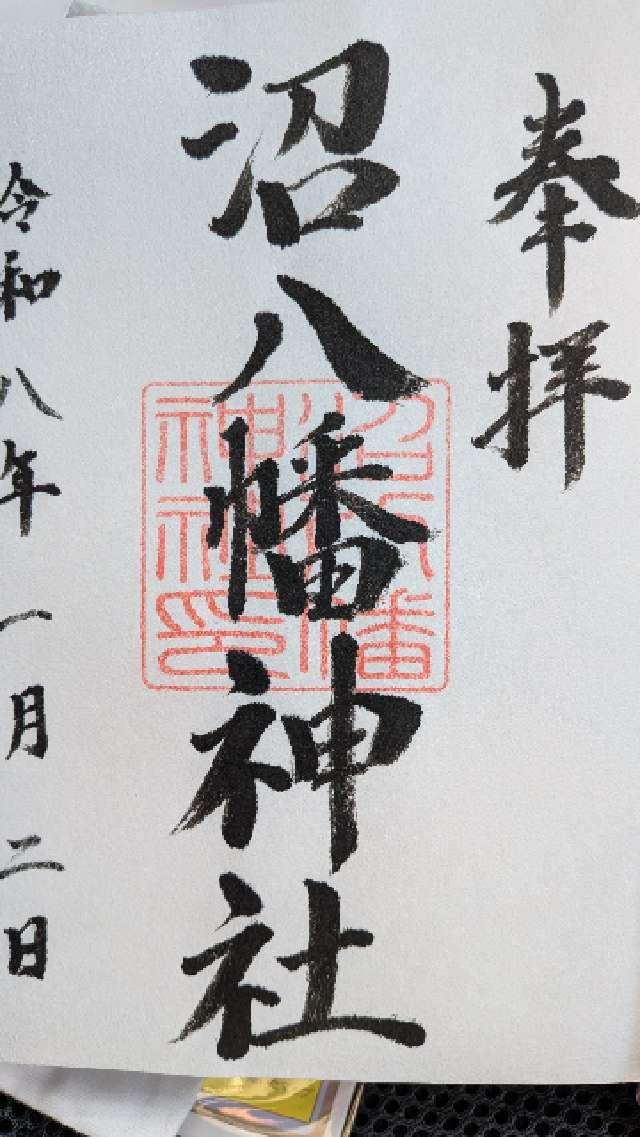 奉拝
沼八幡神社
沼八幡
神社印
令和八年一月二日